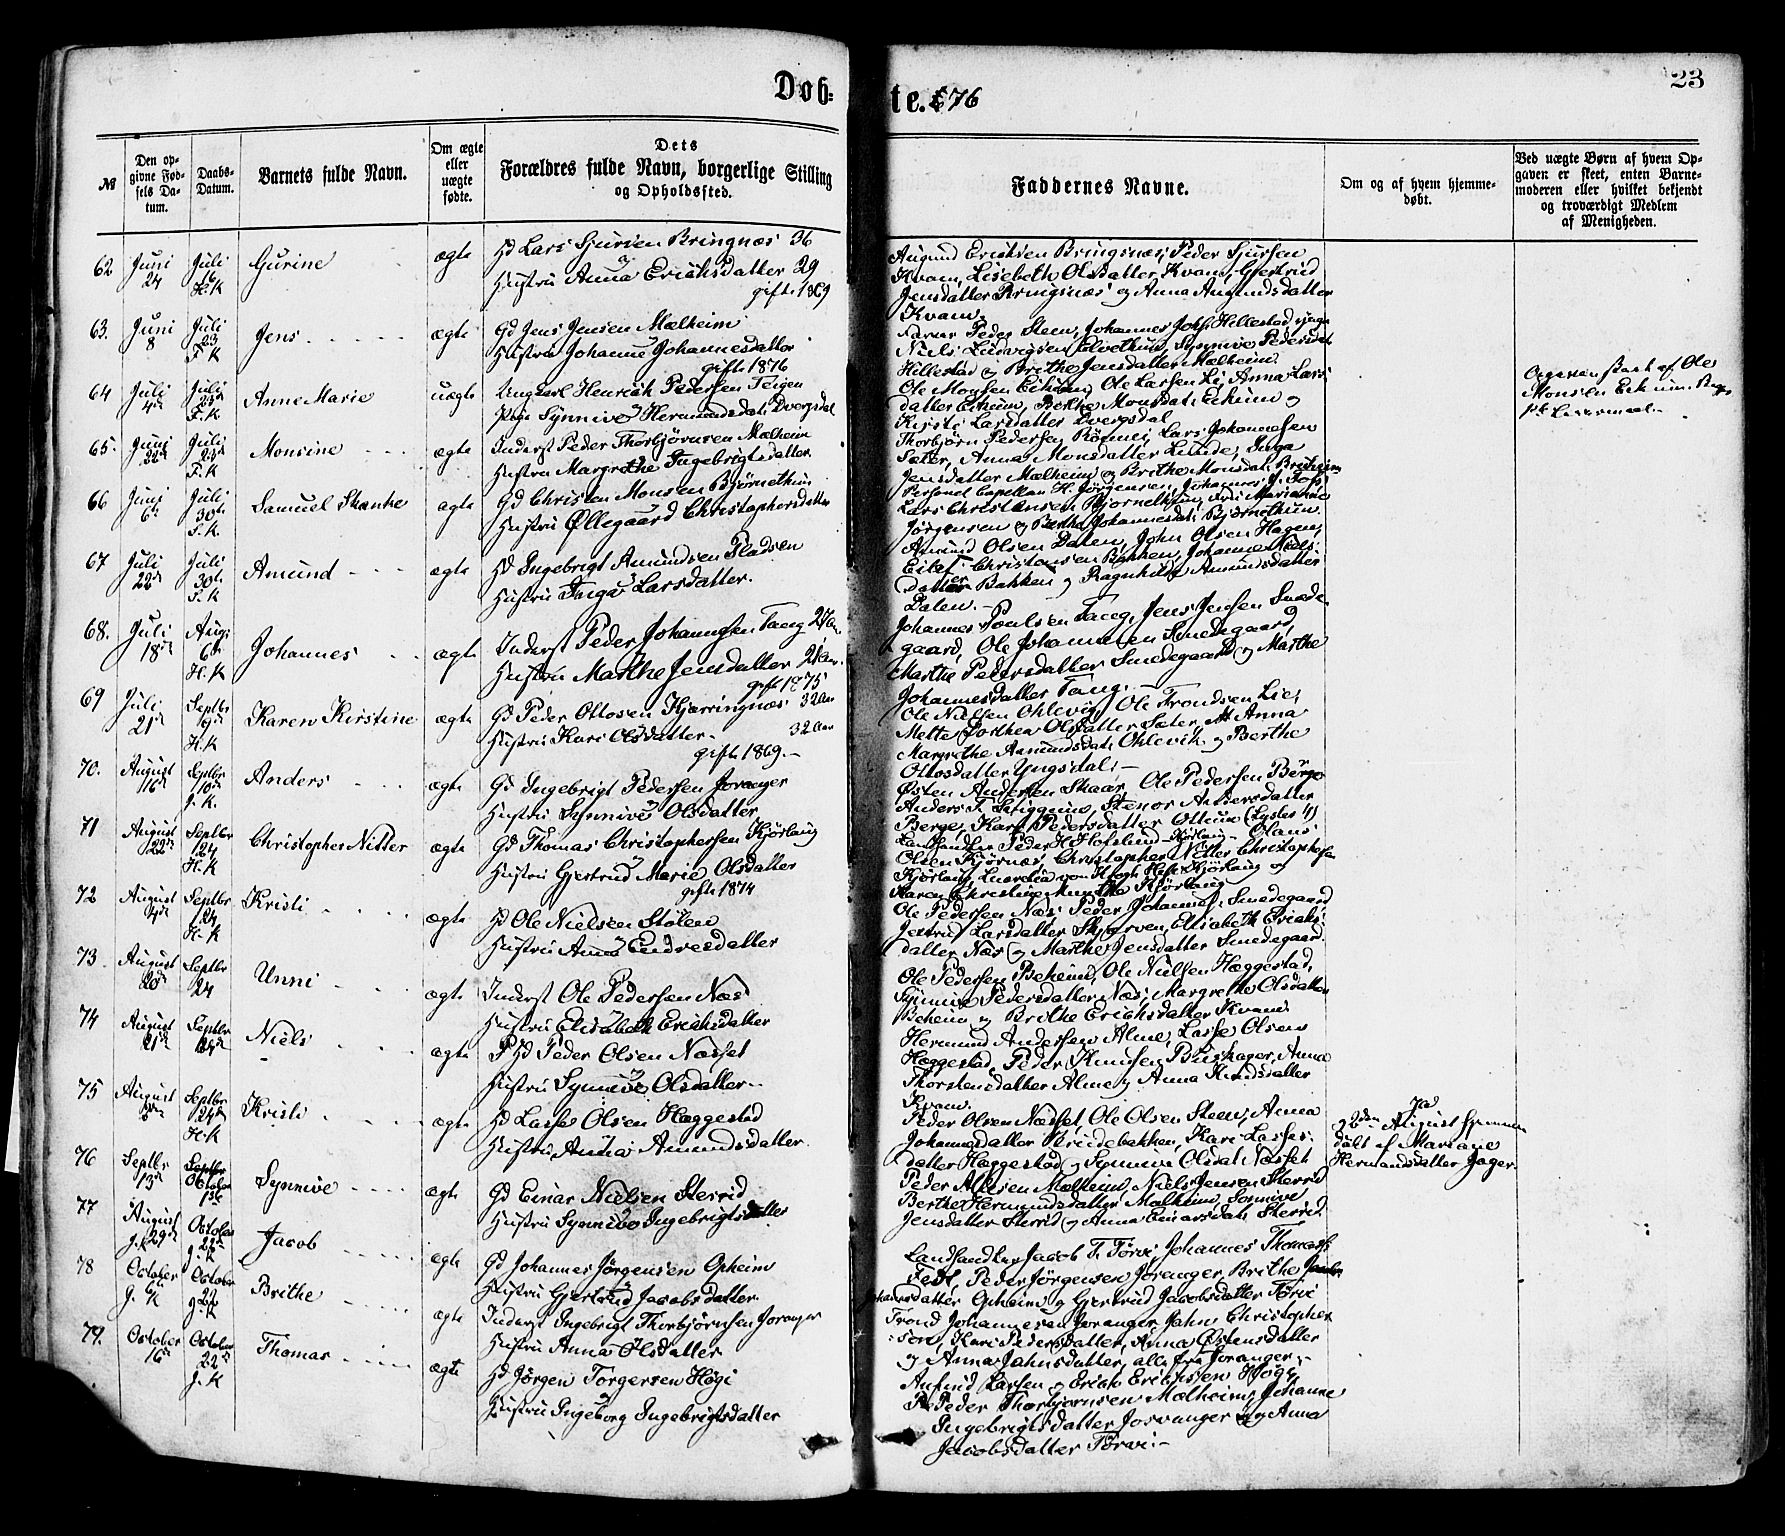 Døb-
te. 1876
23
№
Den op-
givne Fød-
sels Da-
tum.
Daabs-
Datum.
Barnets fulde Navn.
Om ægte
eller
uægte
fødte.
Dets
Forældres fulde Navn, borgerlige Stilling
og Opholdssted.
Faddernes Navne.
Om og af hvem hjemme-
døbt.
Ved uægte Børn af hvem Op-
gaven er skeet, enten Barne-
moderen eller hvilket bekjendt
og troværdigt Medlem
af Menigheden.
62 Juni 24 Juli H. K Gurine ægte
Lars Sjursen Bringnæs 36
Hustru Anna Erichsdatter 29
gift 1869
Amund Erichsen Bringsnæs, Peder Sjursen
Kvam, Lisebeth Olsdatter Kvam, Gjertrud
Jensdatter Bringsnæs og Anna Amundsdatter
Kvam.
63. Juni 8 Juli 23 F. K Jens ægte
Gd Jens Jensen Mælheim
Hustru Johanne Johannesdatter
gift 1876
Peder Steen, Johannes Johs. Hillestad
Niels Ludvigsen Elvethun, Synnive Pedersdat
Hillestad og Brithe Jensdatter Mælheim.
64 Juli 4de Juli F. K Anne Marie uægte
Ungkarl Henrich Pedersen Teigen
Pige Synnive Hermundsdat. Dvergsdal
Ole Monsen Eikum, Ole Larsen Li, Anna Lars-
datter Eikum, Berthe Monsdat. Eikum og
Kristi Larsdatter Dvergsdal
Opgaven skeet af Ole
Monsen Eikum
65. Juni 22de Juli 23de F. K Monsine ægte
Inderst Peder Thorbjørnsen Mælheim
Hustru Margrethe Ingebrigtsdatter
Thorbjørn Pedersen Lars Johannesen
Sæter, Anna Monsdatter Linde, Inga
Jensdatter Mælheim og Brithe Monsdat. Brekheim
66 Juni 6te Juli 30te F. K. Samuel Skanke ægte
Gd Christen Monsen Bjørnethun
Hustru Øllegaard Christophersdatter
Personel Capellan H. Jørgensen, Johannes
Lars Christensen Bjørnethun, Marianne
Jørgensen og Berthe Johannesdat. Bjørnethun
67 Juli 22de Juli 30te F. K Amund ægte
Ingebrigt Amundsen Pladsen
Hustru Inga Larsdatter.
Amund Olsen Dalen, John Olsen Hagen,
Eilef Christensen Bakken, Johanne Niels-
datter Bakken og Ragnhilde Amundsdatter
Dalen.
68. Juli 18de Aug. 6te H. K Johannes ægte
Inderst Peder Johannesen Tang 27 Aar
Hustru Marthe Jensdatter 21 Aar.
gift 1875
Johannes Poulsen Tang, Jens Jensen Smede-
gaard, Ole Johannesen Smedegaard,
Marthe Pedersdatter Smedegaard og Marthe
Johannesdatter Tang.
69 Juli 21de Septbr H. K Karen Kirstine ægte
Gd Peder Ottosen Kjærringnæs 32 Aar
Hustru Kari Olsdatter 32 Aar
gift 1869.
Ole Nielsen Ohlevig, Ole Trondsen Lie,
Mette Dorthea Olsdatter Sæter, Anna
Margrethe Asmundsdat. Ohlevik og Berthe
Ottosdatter Yngsdal.
70. August 16de Septbr 10de J. K. Anders ægte
Gd Ingebrigt Pedersen Joranger
Hustru Synnive Olsdatter
Østen Andersen Skaar, Ole Pedersen Berge
Anders T. Stenor Andersdatter
Berge, Kari Pedersdatter Ottum (Lyster)
71 August 22de Septbr 24 H. K Christopher Nitter ægte
Gd Thomas Christophersen Kjørlaug
Hustru Gjertrud Marie Olsdatter
gift 1874
Landhandler Peder H Hofslund Kjørlaug Olaus
Olsen Kjørnæs, Christopher Nitter Christophersen
Kjørlaug, Lucretia von Krogh Heft Kjørlaug og
Karen Christine Munthe Kjørlaug
72 August Septbr 24 H. K Kristi ægte
Ole Nielsen Stølen
Hustru Anna Endresdatter
Ole Pedersen Næs, Peder Johannes. Smedegaard
Jertrud Larsdatter Skjerven, Elisabeth Erichs-
datter Næs og Marthe Jensdatter Smedegaard.
73. August 20de Septbr 24 Unni ægte
Inderst Ole Pedersen Næs
Hustru Elisabeth Erichsdatter
Ole Pedersen Beheim, Ole Nielsen Hæggestad,
Synnive Pedersdatter Næs, Margrethe Olsdatter
Beheim og Brithe Erichsdatter Kvam
74 August 21de Septbr 24de Niels ægte
Peder Olsen Næsset
Hustru Synnive Olsdatter
Hermund Andersen Alme, Lasse Olsen
Hæggestad, Peder Knudsen Buskager, Anna
Thorstensdatter Alme og Anna Knudsdatter
Kvam.
75 August 2den Septbr 24de H. K Kristi ægte
Lasse Olsen Hæggestad
Hustru Anna Amundsdatter
Peder Olsen Næsset, Ole Olsen Steen, Anna
Johannesdatter Bridebakken, Kari Lasses-
datter Hæggestad og Synnive Olsdat. Næsset
Ja
2den August hjemme
døbt af Mariane
Hermundsdatter Jager
76 Septbr 13de Septbr October 1ste Synnive ægte
Gd Einar Nielsen Skerrid
Hustru Synnive Ingebrigtsdatter
Peder Nilsen Mælheim, Niels Jensen Skerrid
Berthe Hermundsdatter Mælheim, Sonnive
Jensdatter Skerrid og Anna Einarsdat. Skerrid
77 August 29de J. K October 22de J. K Jacob ægte
Gd Johannes Jørgensen Opheim
Hustru Gjertrud Jacobsdatter
Landhandler Jacob T. Tørvi, Johannes Thomass.
Peder Jørgensen Joranger, Brithe
Johannesdatter Opheim og Gjertrud Jacobsdatter Tørvi
78 October J. K October 22 J. K Brithe ægte
Inderst Ingebrigt Thorbjørnsen Joranger
Hustru Anna Olsdatter
Trond Johannesen Joranger, Jahn Christopher-
sen, Kari Pedersdatter, Anna Østensdatter
og Anna Jahnsdatter, alle fra Joranger.
79. October 16de October 22de J. K Thomas ægte
Jørgen Torgersen Høgi
Hustru Ingeborg Ingebrigtsdatter
Anfind Larsen og Erich Erichsen Høgi,
Peder Thorbjørnsen Mælheim, Johanne
Ingebrigtsdatter Joranger og Anna
Jacobsdatter Tørvi.